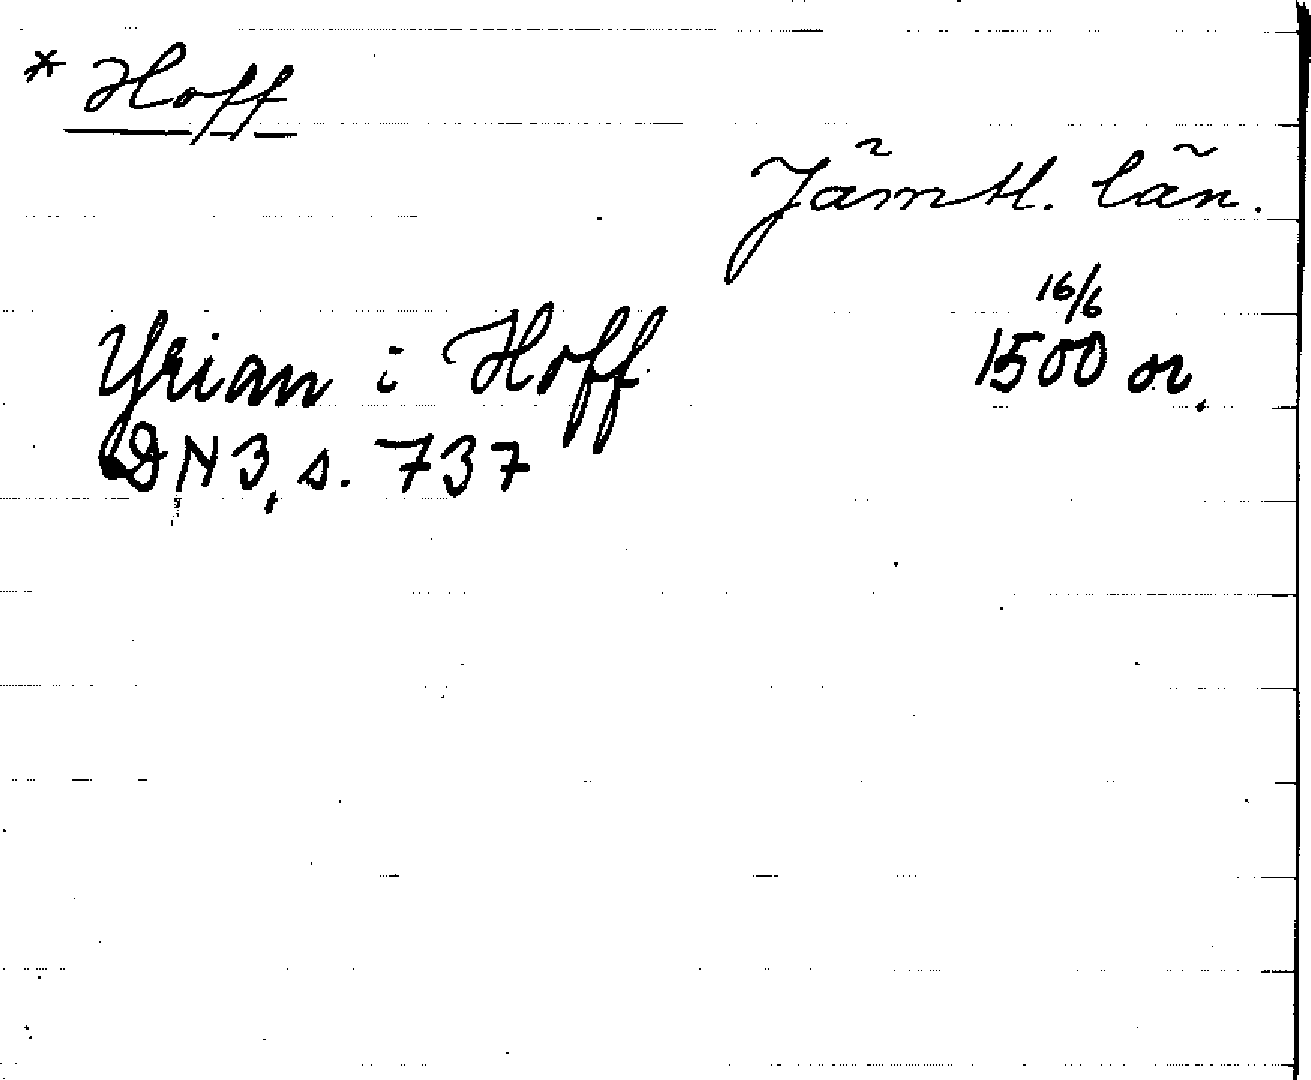 * Hoff
Jämtl. län.
16/6
Yrian i Hoff 1500 or.
DN 3, s. 737